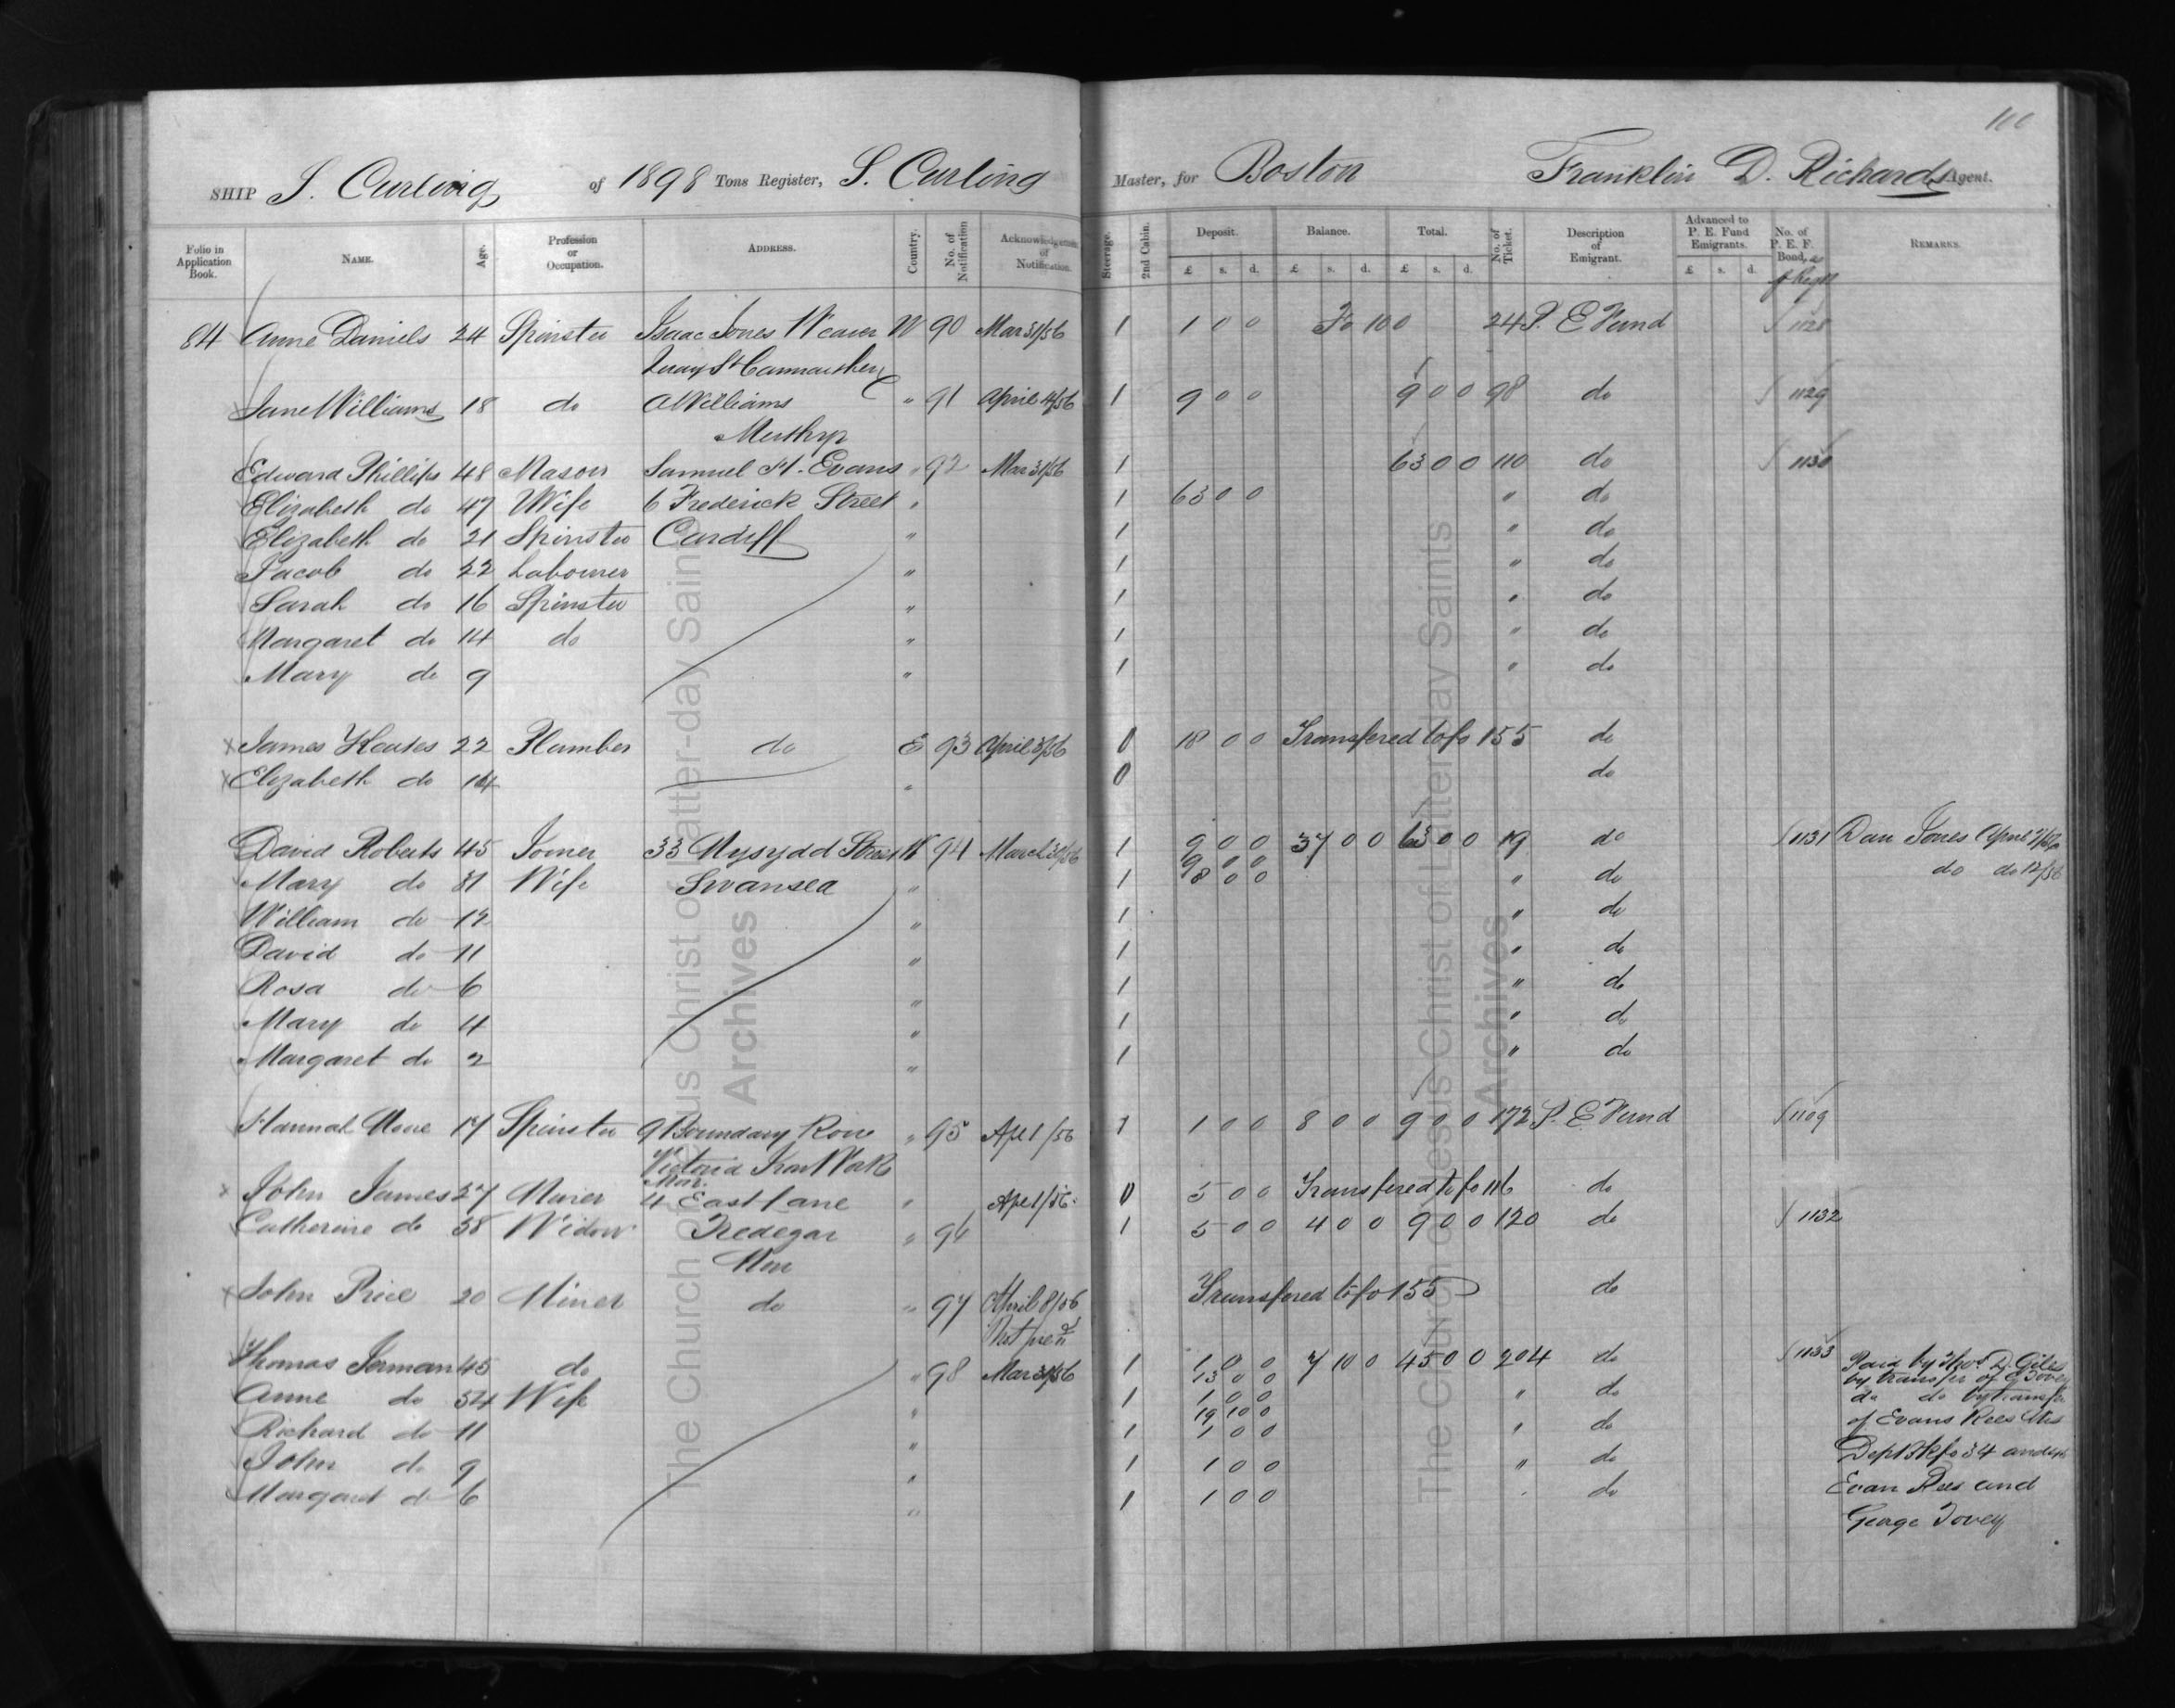 100
SHIP S. Curling of 1898 Tons Register, S. Curling Master, for Boston Franklin D. Richards Agent.
Folio in Application Book. NAME. Age. Profession or Occupation. ADDRESS. Country. No. of Notification Acknowledgement of Notification. Steerage. 2nd Cabin. Deposit. £ s. d. Balance. £ s. d. Total. £ s. d. No. of Ticket. Description of Emigrant. Advanced to P. E. Fund Emigrants. £ s. d. No. of P. E. F. Bond, REMARKS.
84 Anne Daniels 24 Spinster Isaac Jones Weaver W 90 Mar 31/56 1 1 0 0 Fo 100 24 P. E Fund 1128
Quay St Carmarthen
Jane Williams 18 do Williams " 91 April 4/56 1 9 0 0 9 0 0 98 do 1129
Merthyr
Edward Phillips 48 Mason Samuel H. Evans " 92 Mar 31/56 1 63 0 0 110 do 1130
Elizabeth do 47 Wife 6 Frederick Street " 1 63 0 0 " do
Elizabeth do 21 Spinster Cardiff " 1 " do
Jacob do 22 Labourer " 1 " do
Sarah do 16 Spinster " 1 " do
Margaret do 14 do " 1 " do
Mary do 9 " 1 " do
x James 22 Plumber do E 93 April 3/56 0 18 0 0 Transfered to fo 155 do
x Elizabeth do 14 " 0 do
David Roberts 45 Joiner 33 Street W 94 March 31/56 1 9 0 0 37 0 0 63 0 0 19 do 1131 Dan Jones April
9 0 0
Mary do 31 Wife Swansea " 1 8 0 0 " do do do 12/56
William do 12 " 1 " do
David do 11 " 1 " do
Rosa do 6 " 1 " do
Mary do 4 " 1 " do
Margaret do 2 " 1 " do
Hannah 17 Spinster 9 Boundary Row " 95 Apl 1/56 1 1 0 0 8 0 0 9 0 0 172 P. E. Fund 1109
Victoria Iron Works
Mon.
x John James 27 Miner 4 East Lane " Apl 1/56 0 5 0 0 Transfered to fo 116 do
Catherine do 58 Widow Tredegar " 96 1 5 0 0 4 0 0 9 0 0 120 do 1132
Mon
x John Price 20 Miner do " 97 April 8/56 Transfered to fo 155 do
Thomas Jerman 45 do " 98 Mar 31/56 1 1 0 0 7 10 0 45 0 0 204 do 1133 Paid by Thos. D. Giles
13 0 0 by transfer of G Tovey
Anne do 54 Wife " 1 1 0 0 " do do do by transfer
19 10 0 of Evans Rees
Richard do 11 " 1 1 0 0 " do
John do 9 " 1 1 0 0 " do fo 34 and
Margaret do 6 " 1 1 0 0 do Evan Rees and
George Tovey
The Church of Jesus Christ of Latter-day Saints
Archives
The Church of Jesus Christ of Latter-day Saints
Archives